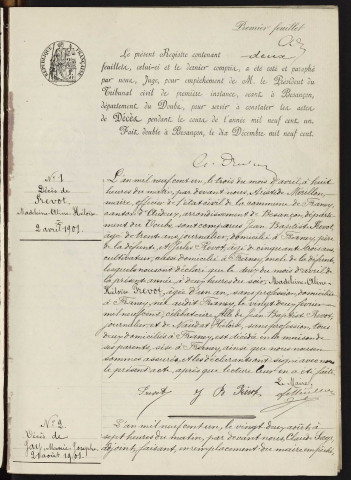 Premier feuillet
Le présent Registre contenant deux
feuillets, celui-ci et le dernier compris, a été coté et paraphé
par nous, Juge, pour empêchement de M. le Président du
Tribunal civil de première instance, séant à Besançon,
département du Doubs, pour servir à constater les actes
de Décès, pendant le cours de l'année mil neuf cent un.
Fait, double à Besançon, le dix Décembre mil neuf cent.
N° 1
Décès de
Prevot,
2 avril 1901.
L'an mil neuf cent un, le trois du mois d'avril, à huit
heures du matin, par devant nous,
maire, officier de l'état civil de la commune de
canton d' arrondissement de Besançon, département
du Doubs, sont comparus Jean Baptiste Prevot,
âgé de trente ans, journalier, domicilié à père
de la défunte, et Jules Prevot, âgé de cinquante trois ans,
cultivateur, aussi domicilié à de la défunte,
lesquels nous ont déclaré que le deux du mois d'avril de
la présente année, à deux heures du soir, Madeleine
Prevot, âgée d'un an, sans profession, domiciliée
à née audit le vingt deux février
mil neuf cent, célibataire, fille de Jean Baptiste Prevot,
journalier et de sans profession, tous
deux domiciliés à est décédée en la maison de
ses parents, sise à ainsi que nous nous en
sommes assurés. Et les déclarants ont signé avec nous
le présent acte, après que lecture leur en a été faite.
Le Maire,
Prevot J B Prevot
N° 2
Décès de
2 août 1901.
L'an mil neuf cent un, le vingt deux août, à
sept heures du matin, par devant nous Claude
adjoint, faisant, en remplacement du maire empêché,